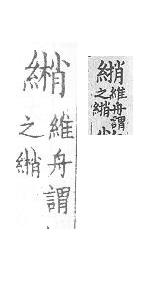 綃
維舟謂
之綃
綃
維舟謂
之綃